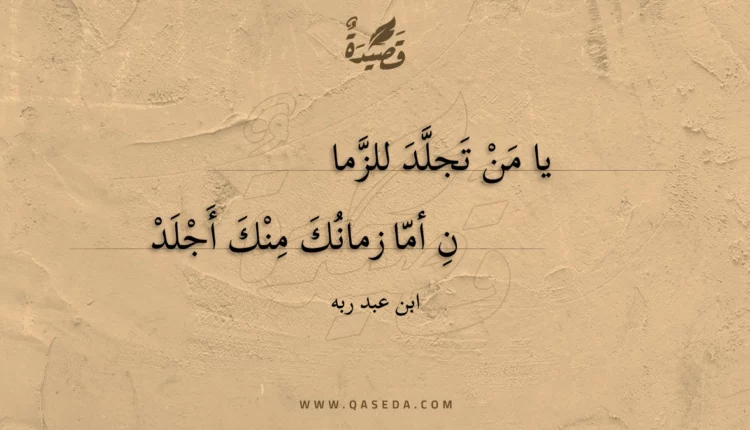 قَصِيْدَةٌ
يا مَنْ تَجلَّدَ للزَّما
نِ أمّا زمانُكَ مِنْكَ أَجْلَدْ
ابن عبد ربه
WWW.QASEDA.COM